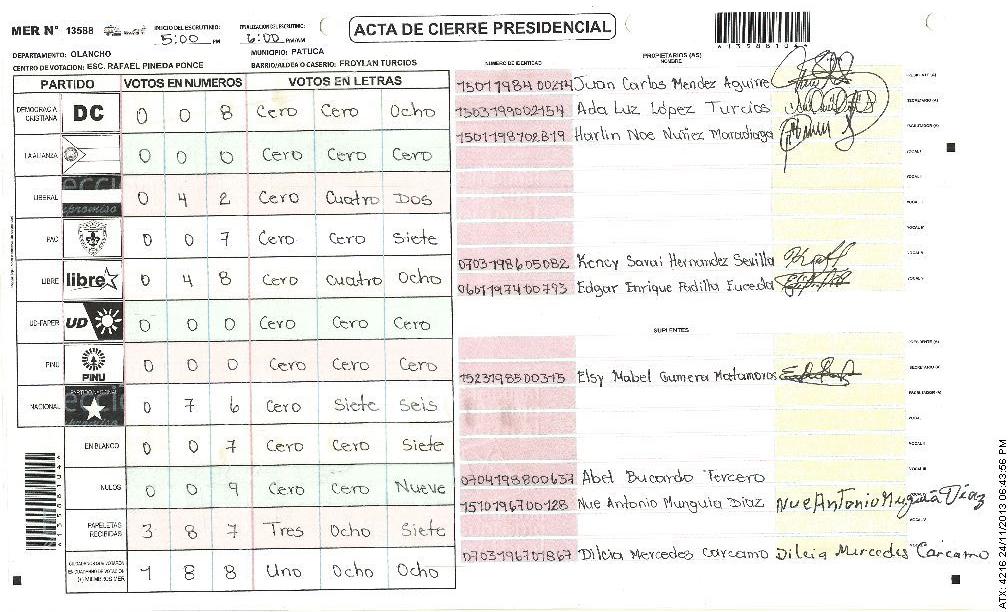 MER N° 13588 INICIO DEL ESCRUTINIO: 5:00 PM FINALIZACION DEL ESCRUTINIO: 6:00 PM/AM
ACTA DE CIERRE PRESIDENCIAL
DEPARTAMENTO: OLANCHO MUNICIPIO: PATUCA
CENTRO DE VOTACION: ESC. RAFAEL PINEDA PONCE BARRIO/ALDEA O CASERIO: FROYLAN TURCIOS
PARTIDO VOTOS EN NUMEROS VOTOS EN LETRAS
DEMOCRACIA CRISTIANA DC 0 0 8 Cero Cero Ocho
LA ALIANZA 0 0 0 Cero Cero Cero
LIBERAL 0 4 2 Cero Cuatro Dos
PAC 0 0 7 Cero Cero Siete
LIBRE libre 0 4 8 Cero Cuatro Ocho
UD-FAPER UD 0 0 0 Cero Cero Cero
PINU PINU 0 0 0 Cero Cero Cero
NACIONAL 0 7 6 Cero Siete Seis
EN BLANCO 0 0 7 Cero Cero Siete
NULOS 0 0 9 Cero Cero Nueve
PAPELETAS RECIBIDAS 3 8 7 Tres Ocho Siete
CIUDADANOS QUE VOTARON EN CUADERNO DE VOTACION (+) MIEMBROS MER 1 8 8 Uno Ocho Ocho
NUMERO DE IDENTIDAD PROPIETARIOS (AS) NOMBRE
1501198400214 Juan Carlos Mendez Aguirre
1503199002154 Ada Luz López Turcios
1501198702819 Harlin Noe Nuñez Maradiaga
0703198605082 Kency Sarai Hernandez Sevilla
0601197400793 Edgar Enrique Padilla Euceda
SUPLENTES
1523198500315 Elsy Mabel Gumera Matamoros
0704198800637 Abel Bucardo Tercero
1510196700128 Nue Antonio Munguia Diaz Nue Antonio Munguia Diaz
0703196701867 Dilcia Mercedes Carcamo Dilcia Mercedes Carcamo
ATX: 4216 24/11/2013 06:43:56 PM